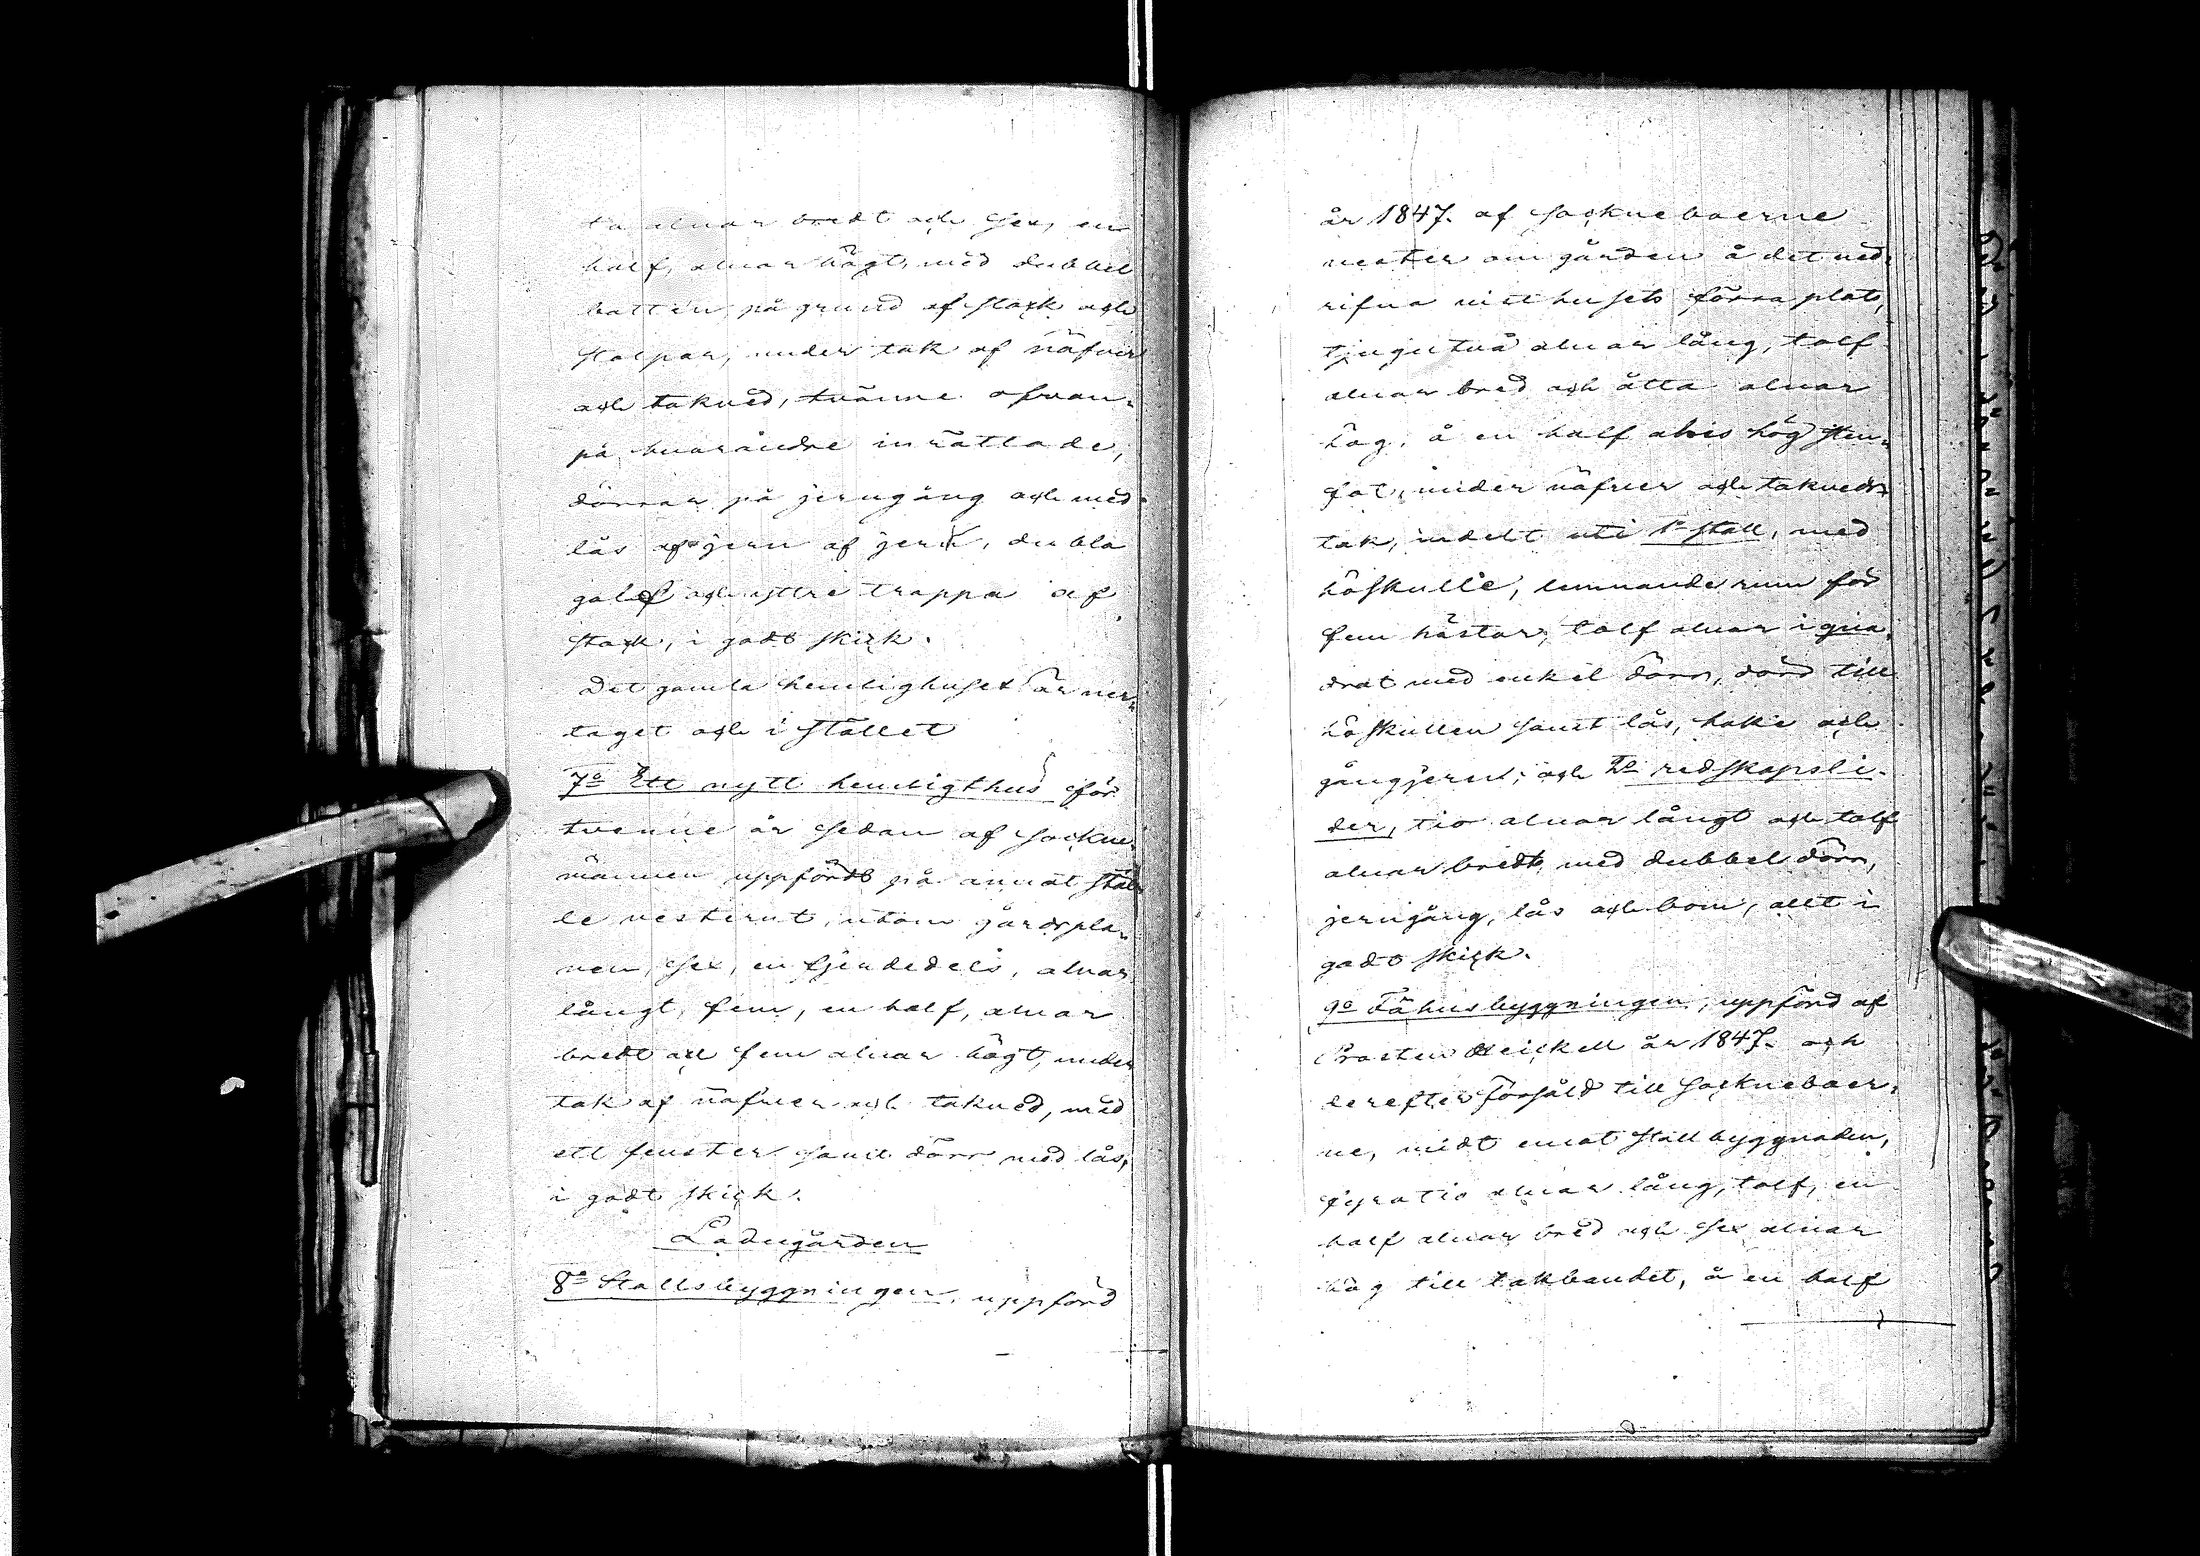 ta alnar bredt och sex, en
half, alnar högt, med dubbel
botten, på grund af stock och
stolpar, under tak af näfver
och takved, tvänne ofvan-
på hvarandre inrättade,
dörrar på jerngång och med
lås af jern, dubla
golf och yttre trappa af
stock, i godt skick.
Det gamla hemlighuset är ner-
taget och i stället
7o Ett nytt hemligthus för
tvenne år sedan af sockne-
männen uppfördt på annat stäl-
le vesterut, utom gårdspla-
nen, sex, en fjerdedels, alnar
långt, fem, en half, alnar
bredt och fem alnar högt, under
tak af näfver och takved, med
ett fenster samt dörr med lås,
i godt skick.
Ladugården
8o Stallsbyggningen, uppförd
år 1847. af Socknеboerne
vester om gården å det ned-
rifna villhusets förra plats,
tjugutvå alnar lång, tolf
alnar bred och åtta alnar
hög, å en half alns hög sten-
fot, under näfver och takveds
tak, indelt uti 1o stall, med
höskulle, lemnande rum för
fem hästar, tolf alnar i qva-
drat med enkel dörr, dörr till
höskullen samt lås, hake och
gångjern; och 2o redskapsli-
der, tio alnar långt och tolf
alnar bredt, med dubbel dörr,
jerngång, lås och bom, allt i
godt skick.
9o Fähusbyggningen, uppförd af
Prosten Heickell år 1847. och
derefter försåld till Sockneboer-
ne, midt emot stallbyggnaden,
fyratio alnar lång, tolf, en
half alnar bred och sex alnar
hög till takbandet, å en half